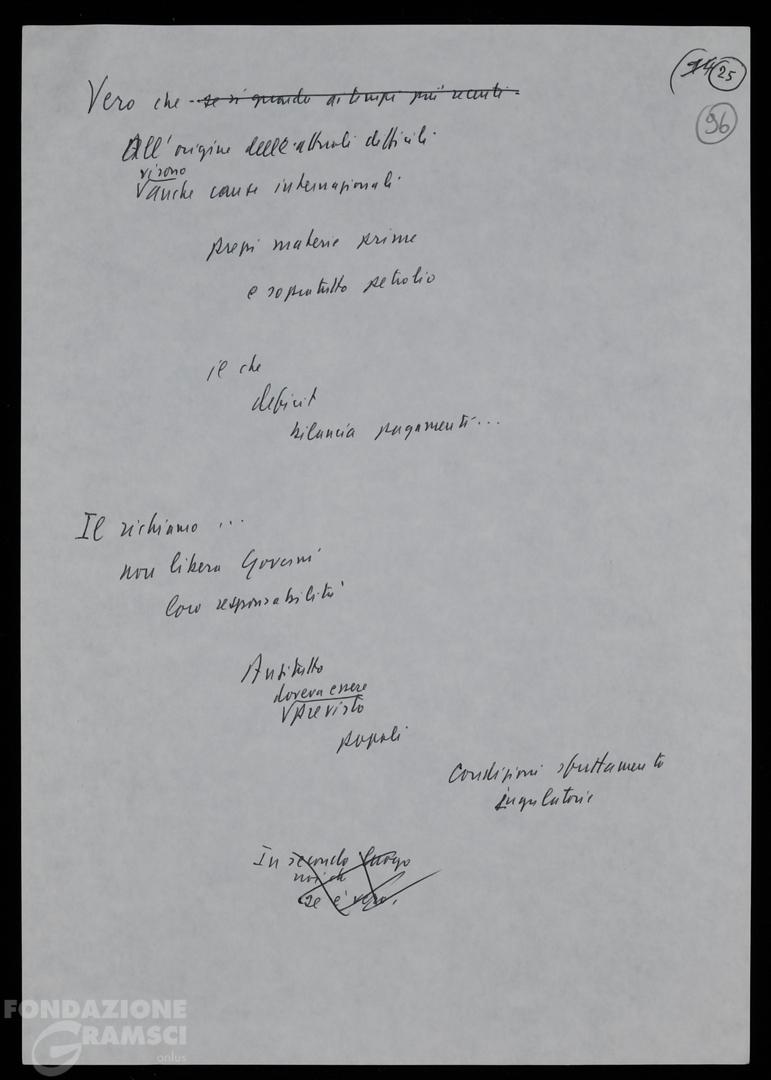 25
96
Vero che se si guarda ai tempi più recenti
All'origine delle attuali difficili
vi sono
anche cause internazionali
prezzi materie prime
e sopratutto petrolio
il che
deficit
bilancia pagamenti...
Il richiamo ...
non libera Governi
loro responsabilità
Antitutto
doveva essere
previsto
popoli
Condizioni sfruttamento
In secondo luogo
se è vero,
FONDAZIONE
GRAMSCI
onlus